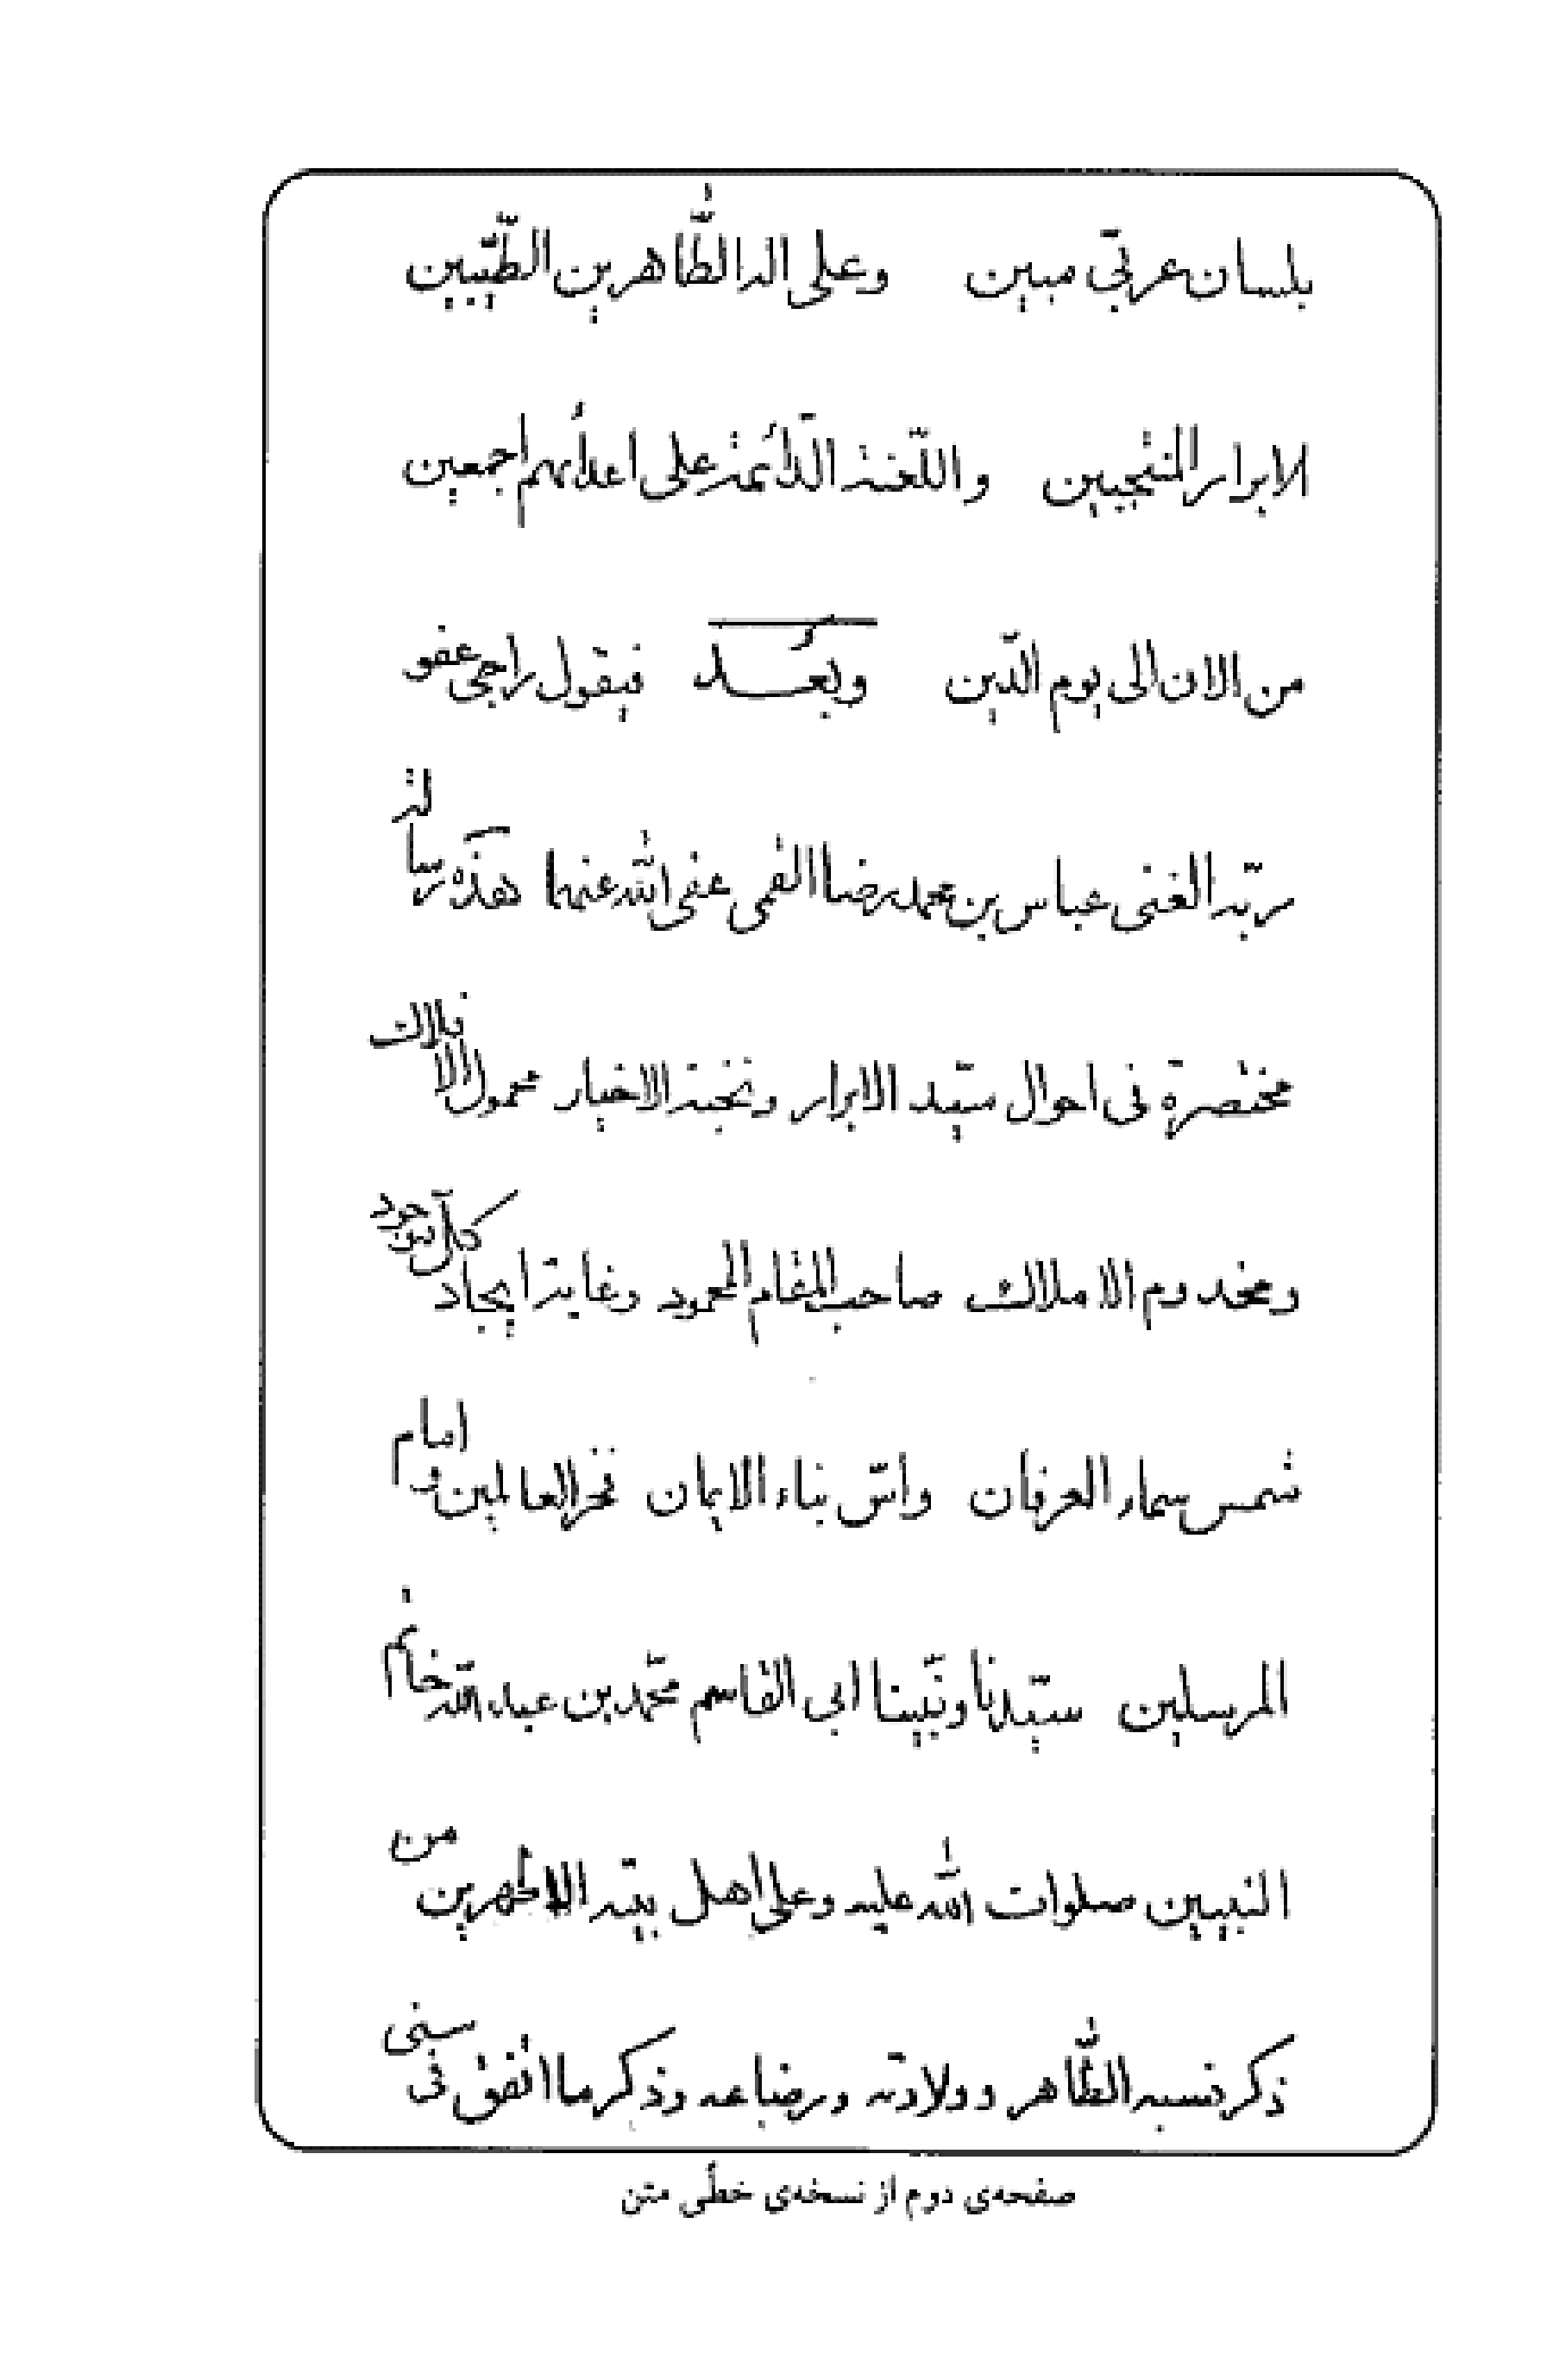 بلسان عربیّ مبین وعلی اله الطّاهرین الطّیّبین
الابرار المنتجبین واللّعنة الدّائمة علی اعدائهم اجمعین
من الان الی یوم الدّین وبعد فیقول راجی عفو
ربّه الغنی عباس بن محمد رضا القمی عفی الله عنهما هذه رسالة
مختصرة فی احوال سیّد الابرار ونخبة الاخیار محمول الافلاک
ومخدوم الاملاک صاحب المقام المحمود وغایة ایجاد کلّ
شمس سماء العرفان واسّ بناء الایمان فخر العالمین و امام
المرسلین سیّدنا ونبّینا ابی القاسم محمّد بن عبد الله خاتم
النبیین صلوات الله علیه وعلی اهل بیته الاطهرین من
ذکر نسبه الطّاهر وولادته ورضاعه وذکر ما اتفق فی سنی
صفحه‌ی دوم از نسخه‌ی خطّی متن